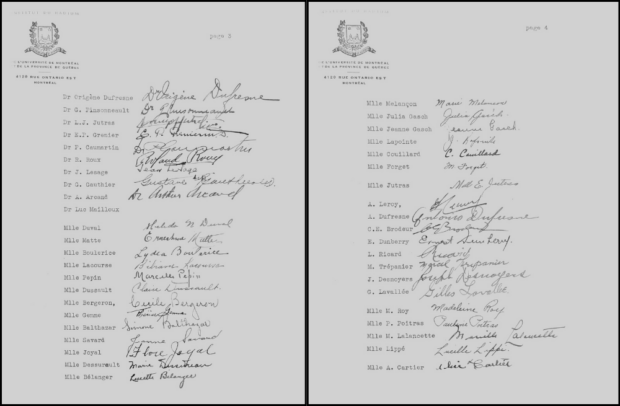 page 3
L'UNIVERSITÉ DE MONTRÉAL
DE LA PROVINCE DE QUÉBEC
4120 RUE ONTARIO EST
MONTRÉAL
Dr Origène Dufresne Dr Origène Dufresne
Dr G. Pinsonneault Dr Pinsonneault
Dr L.J. Jutras
Dr E.P. Grenier
Dr P. Coumartin
Dr R. Roux Roland Roux
Dr J. Lesage Jean Lesage
Dr G. Gauthier Gustave Gauthier
Dr A. Arcand Dr Arthur Arcand
Dr Luc Mailloux
Mlle Duval M Duval
Mlle Matte Ernestine Matte
Mlle Boulerice Lydia Boulerice
Mlle Lacoures
Mlle Pepin Pepin
Mlle Dussault Claire Dussault
Mlle Bergeron, Cecile Bergeron
Mlle Gemme Gemme
Mlle Balthazar Simone Balthazar
Mlle Savard Savard
Mlle Joyal Flore Joyal
Mlle Dessureault Marie
Mlle Bélanger Lorette Belanger
page 4
L'UNIVERSITÉ DE MONTRÉAL
DE LA PROVINCE DE QUÉBEC
4120 RUE ONTARIO EST
MONTRÉAL
Mlle Melançon Marie Melancon
Mlle Julia Gasch Julia Gasch
Mlle Jeanne Gasch Jeanne Gasch
Mlle Lapointe
Mlle Couillard C. Couillard
Mlle Forget M Forget
Mlle Jutras Mlle E Jutras
A. Leroy,
A. Dufresne Antonio Dufresne
C.E. Brodeur Brodeur
R. Dunberry
L. Ricard Ricard
M. Trépanier Marcel Trepanier
J. Desnoyers Joseph Desnoyers
G. Lavallée Gilles Lavallée
Mlle M. Roy Madeleine Roy
Mlle P. Poitras Poitras
Mlle M. Lalancette Lalancette
Mlle Lippé Lucille Lippé
Mlle A. Cartier Cartier